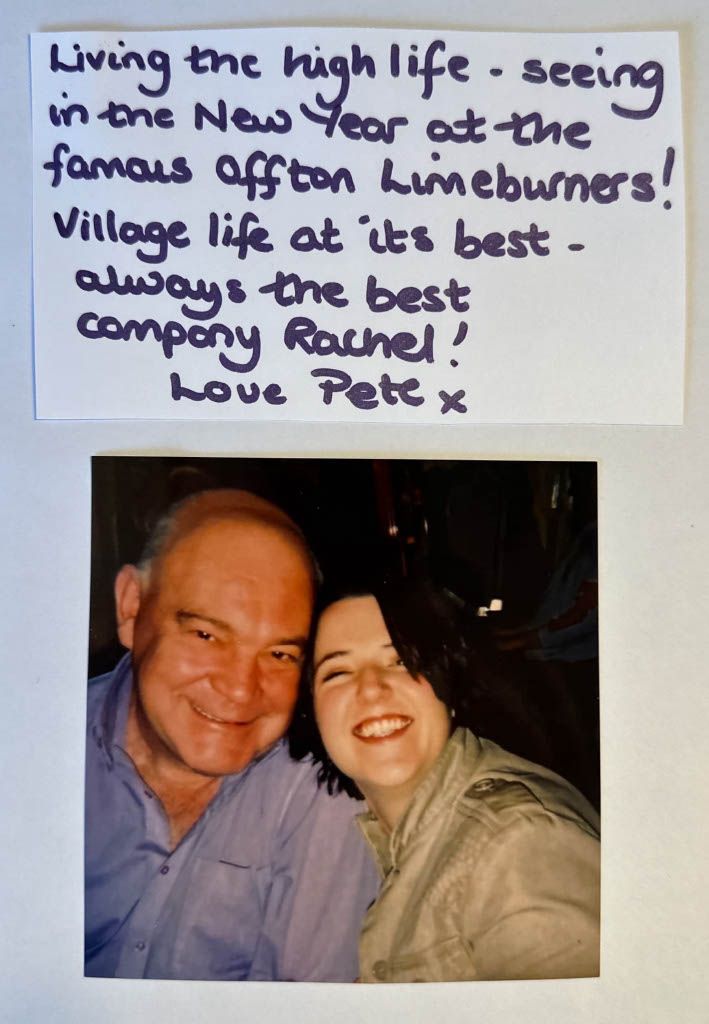 Living the high life - seeing
in the New Year at the
famous Offton Limeburners!
Village life at it's best -
always the best
company Rachel!
Love Pete x